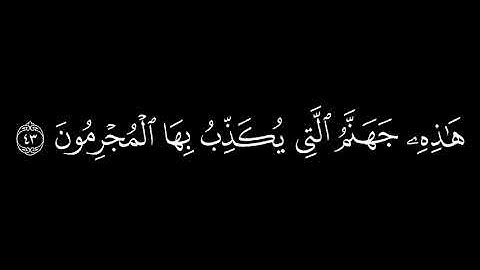 هَٰذِهِۦ جَهَنَّمُ ٱلَّتِي يُكَذِّبُ بِهَا ٱلْمُجْرِمُونَ ٤٣